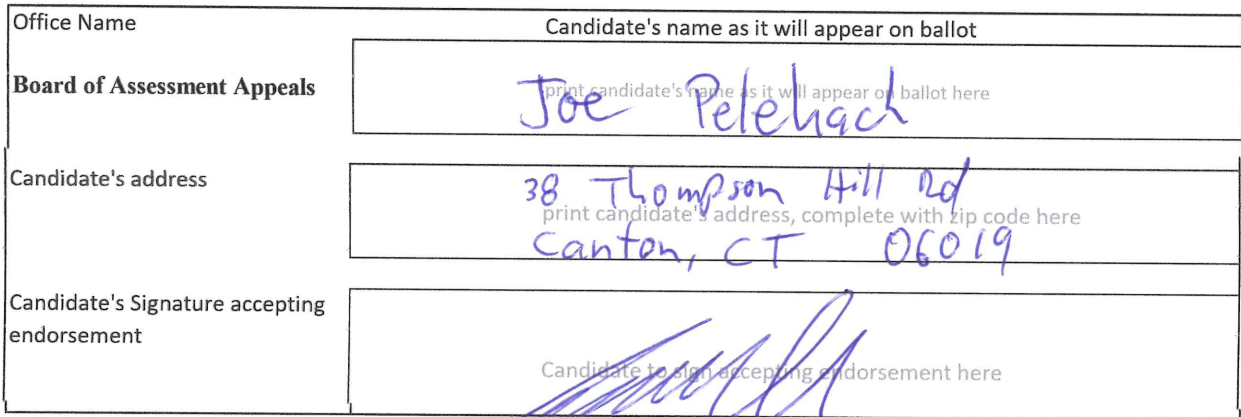 Office Name
Candidate's name as it will appear on ballot
Board of Assessment Appeals
print candidate's name as it will appear on ballot here
Joe Pelehach
Candidate's address
38 Thompson Hill Rd
print candidate's address, complete with zip code here
Canton, CT 06019
Candidate's Signature accepting
endorsement
Candidate to sign accepting endorsement here